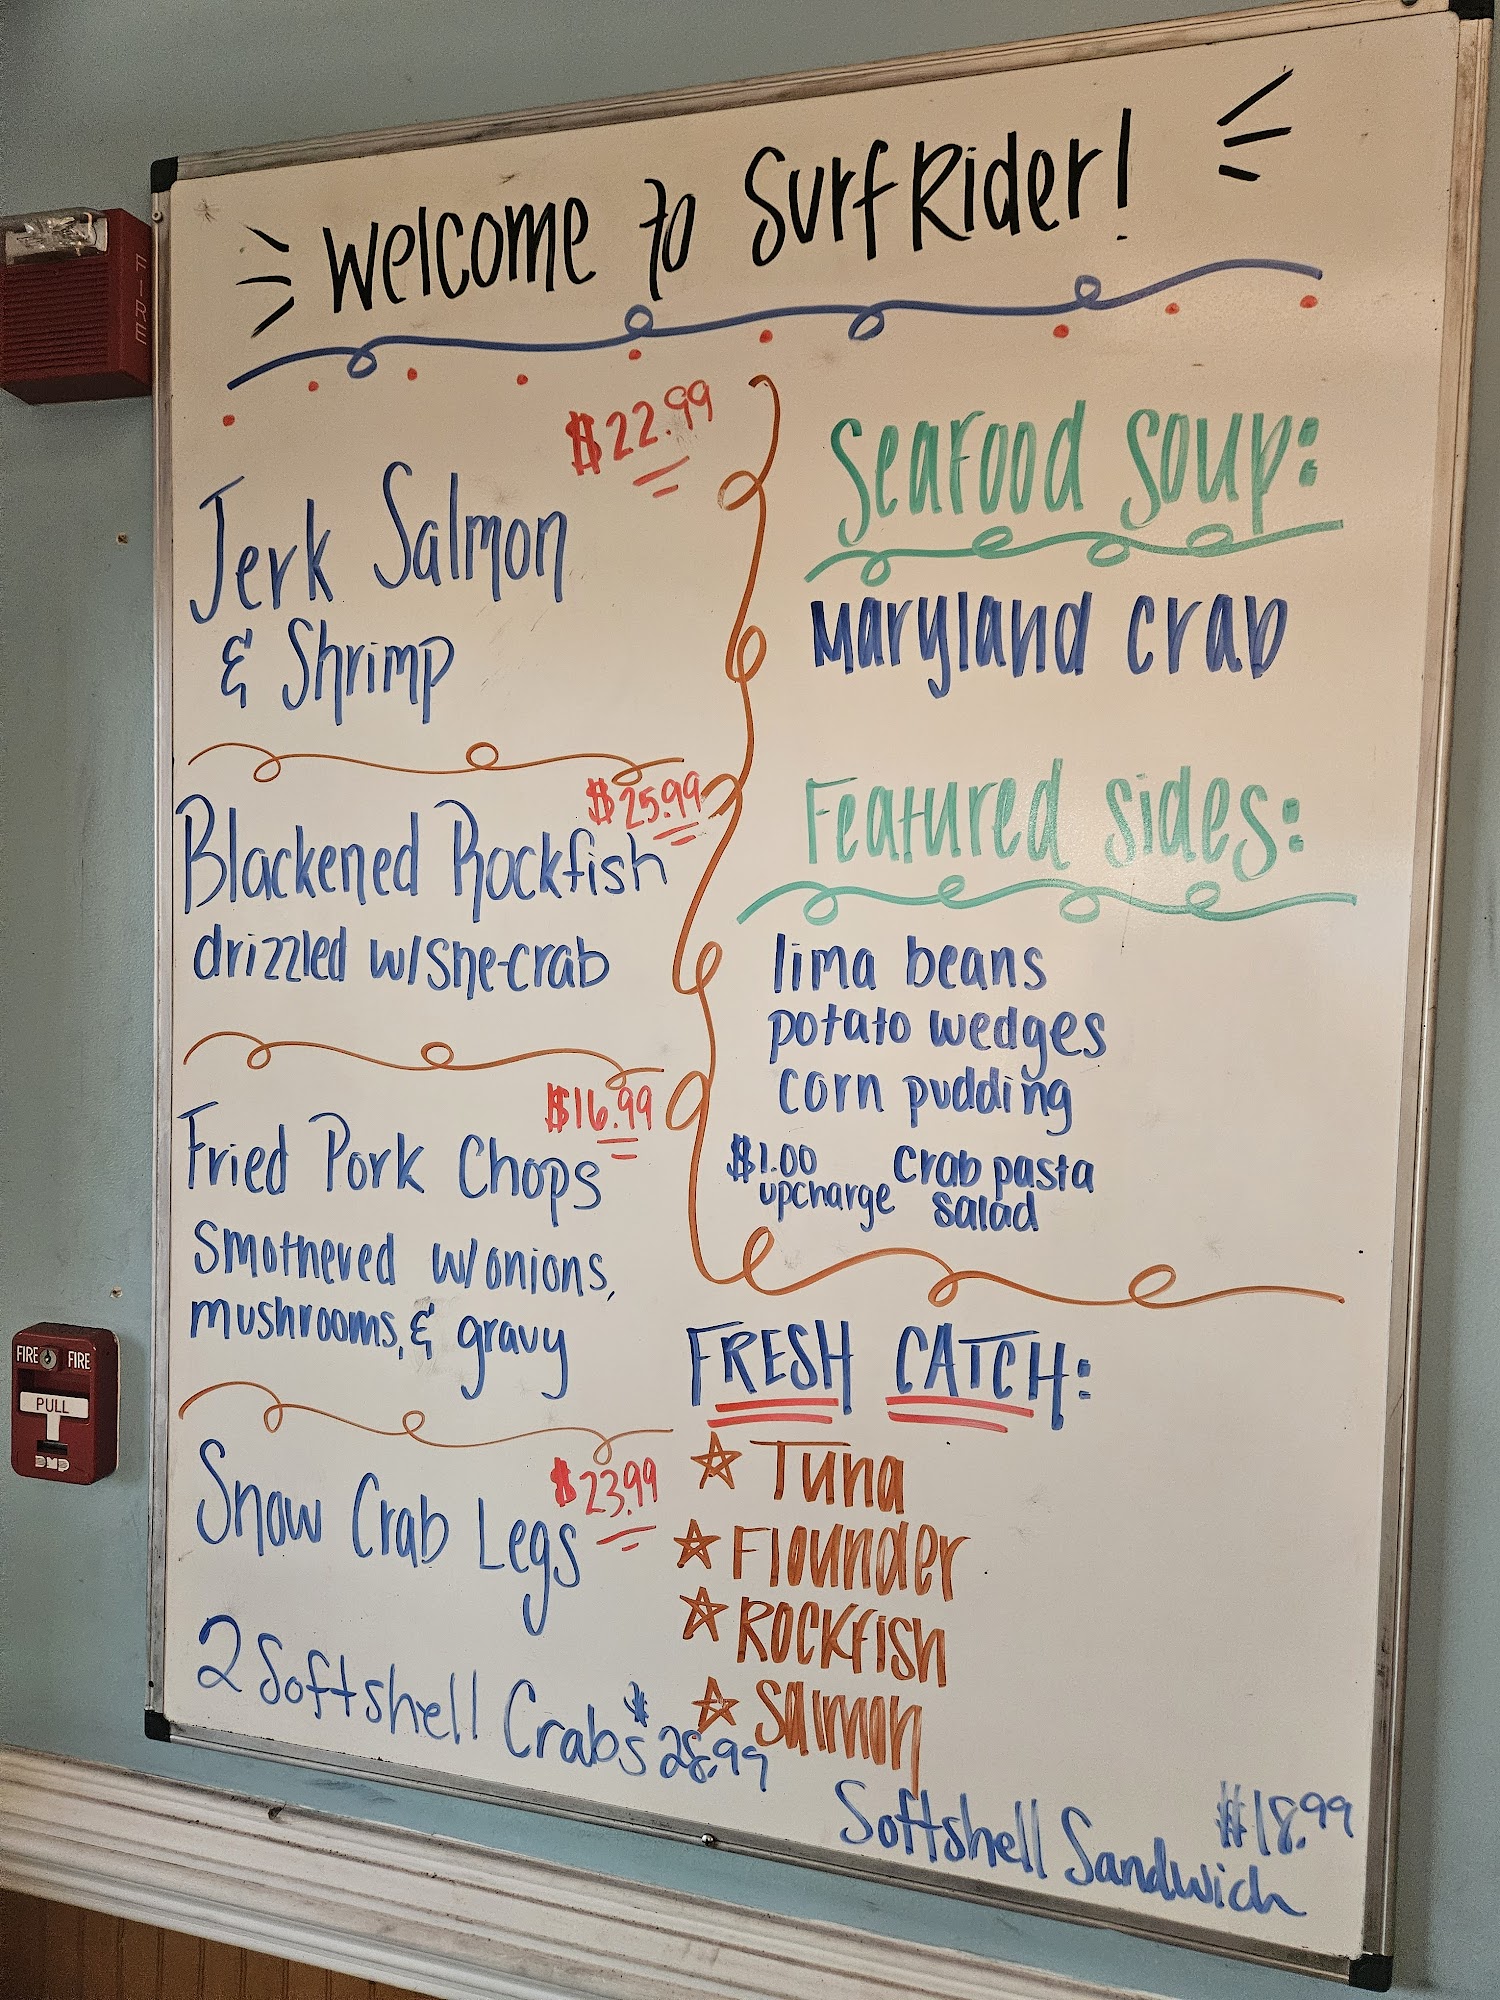 Welcome to Surf Rider!
$22.99
Jerk Salmon
& Shrimp
$25.99
Blackened Rockfish
drizzled w/she-crab
$16.99
Fried Pork Chops
smothered w/onions,
mushrooms, & gravy
$23.99
Snow Crab Legs
2 Softshell Crabs $28.99
Seafood Soup:
Maryland Crab
Featured Sides:
lima beans
potato wedges
corn pudding
$1.00 upcharge
crab pasta
salad
FRESH CATCH:
☆ Tuna
☆ Flounder
☆ Rockfish
☆ Salmon
Softshell Sandwich $18.99
FIRE
FIRE FIRE
PULL